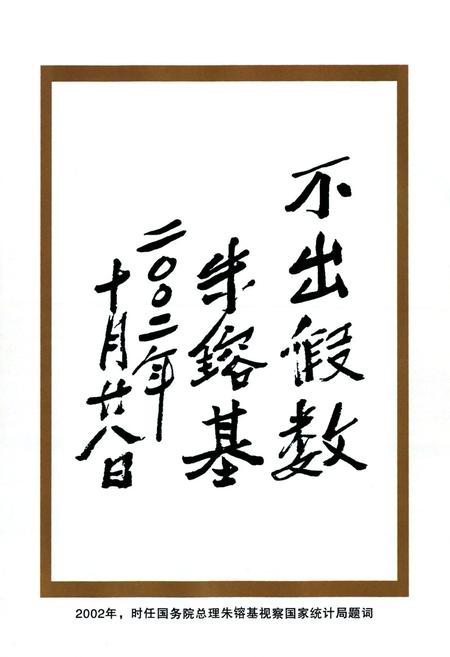 不出假数
朱鎔基
二〇〇二年
十月廿八日
2002年，时任国务院总理朱镕基视察国家统计局题词